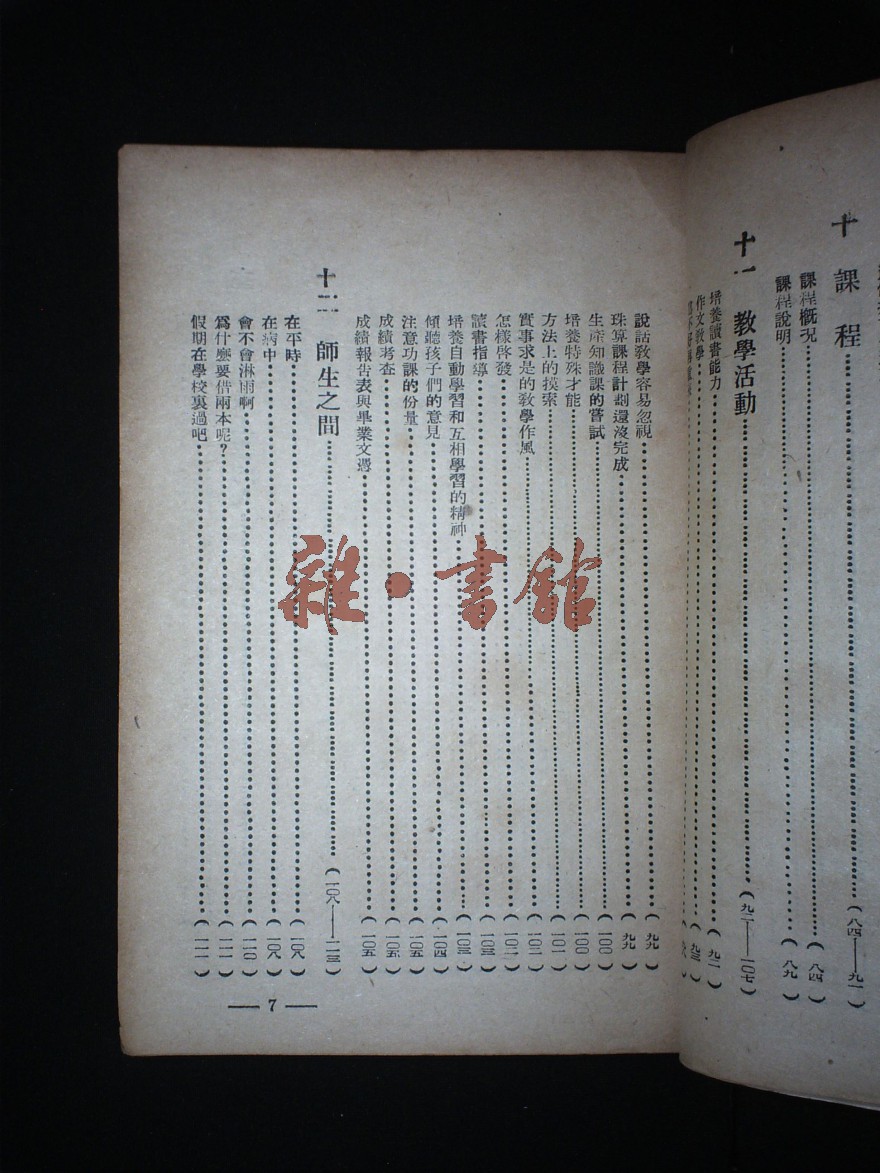 十 課程……(八四——九一)
課程概況……(八四)
課程說明……(八九)
十一 教學活動……(九二——一〇七)
培養讀書能力……(九二)
作文教學……(九三)
說話教學容易忽視……(九九)
珠算課程計劃還沒完成……(九九)
生產知識課的嘗試……(一〇〇)
培養特殊才能……(一〇〇)
方法上的摸索……(一〇一)
實事求是的教學作風……(一〇二)
怎樣啓發……(一〇二)
讀書指導……(一〇三)
培養自動學習和互相學習的精神……(一〇三)
傾聽孩子們的意見……(一〇四)
注意功課的份量……(一〇五)
成績考查……(一〇五)
成績報告表與畢業文憑……(一〇五)
十二 師生之間……(一〇八——一一三)
在平時……(一〇八)
在病中……(一〇八)
會不會淋雨啊……(一一〇)
爲什麽要借兩本呢?……(一一一)
假期在學校裏過吧……(一一一)
— 7 —
雜·書館